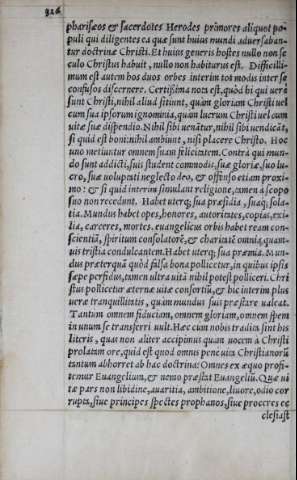 326
pharisæos et sacerdotes Herodes prônores aliquot po-
puli qui diligentes ea quæ sunt huius mundi aduersaban-
tur doctrinæ Christi. Et huius generis hostes nullo non se
culo Christus habuit, nullo non habiturus est. Difficilli-
mum est autem hos duos orbes interim tot modis inter se
confusos discernere. Certissima nota est, quòd hi qui uerè
sunt Christi, nihil aliud sitiunt, quàm gloriam Christi uel
cum sua ipsorum ignominia, quàm lucrum Christi uel cum
uitæ suæ dispendio. Nihil sibi uenãtur, nihil sibi uendicãt,
si quid est boni: nihil ambiunt, nisi placere Christo. Hoc
uno metiuntur omnem suam felicitatem. Contrà qui mun-
do sunt addicti, suis student commodis, suæ gloriæ, suo lu-
cro, suæ uoluptati neglecto deo, et offenso etiam proxi-
mo: et si quid interim simulant religione, tamen à scopo
suo non recedunt. Habet uterq; sua præsidia, suaq; sola-
tia. Mundus habet opes, honores, autoritates, copias, exi-
lia, carceres, mortes. euangelicus orbis habet ream con-
scientiã, spiritum consolatorẽ, et charitatẽ omnia, quam-
uis tristia conculcantem. Habet uterq; sua præmia. Mun-
dus præterquã quòd falsa bona pollicetur, in quibus ipsis
sæpe perfidus, tamen ultra uitã nihil potest polliceri. Chri
stus pollicetur æternæ uitæ consortiũ, et hic interim plus
ueræ tranquillitatis, quàm mundus suis præstare ualeat.
Tantum omnem fiduciam, omnem gloriam, omnem spem
in unum se transferri uult. Hæc cum nobis tradita sint his
literis, quas non aliter accipimus quàm uocem à Christi
prolatam ore, quid est quod omnis pene uita Christianorũ
tantum abhorret ab hac doctrina? Omnes ex æquo profi-
temur Euangelium, et nemo præstat Euangeliũ. Quæ ui
tæ pars non libidine, auaritia, ambitione, liuore, odio cor
rupta, siue principes spectes prophanos, siue proceres ec
clesiast